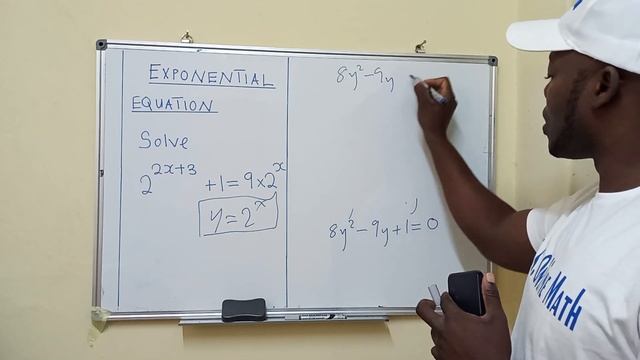 EXPONENTIAL
EQUATION
Solve
2^(2x+3) + 1 = 9 × 2^x
y = 2^x
8y² - 9y
8y² - 9y + 1 = 0
MATH